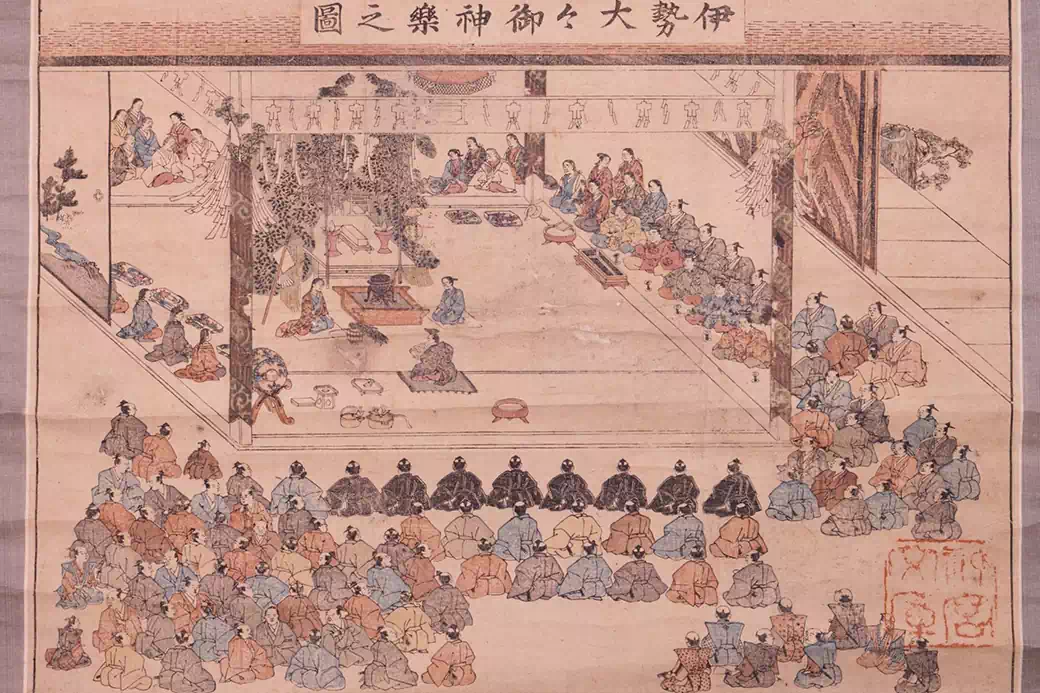 伊勢大々御神樂之圖
神宮